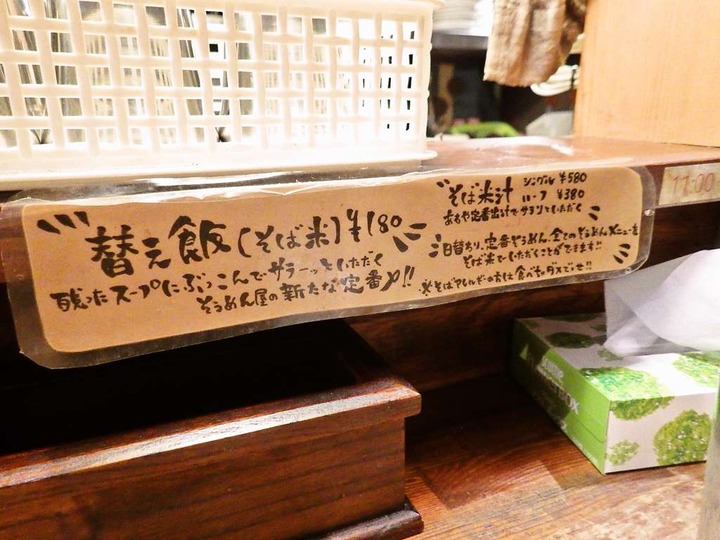 替え飯(そば米)¥180
残ったスープにぶっこんでサラーッといただく
そうめん屋の新たな定番〆!!
そば米汁 シングル ¥580
ハーフ ¥380
あるや定番出汁でサラリといただく
日替わり、定番そうめん、全てのそうめんメニューを
そば米でいただくことができます!!
※そばアレルギーの方は食べちゃダメでっせ!!
11:00